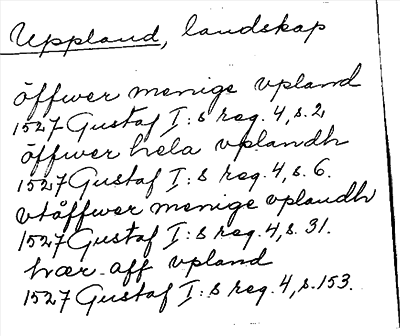 Uppland, landskap
öffwer menige vpland
1527 Gustaf I:s reg. 4, s. 2
öffwer hela vplandh
1527 Gustaf I:s reg. 4, s. 6.
vtåffwer menige vplandh
1527 Gustaf I:s reg. 4, s. 31.
hær aff vpland
1527 Gustaf I:s reg. 4, s. 153.